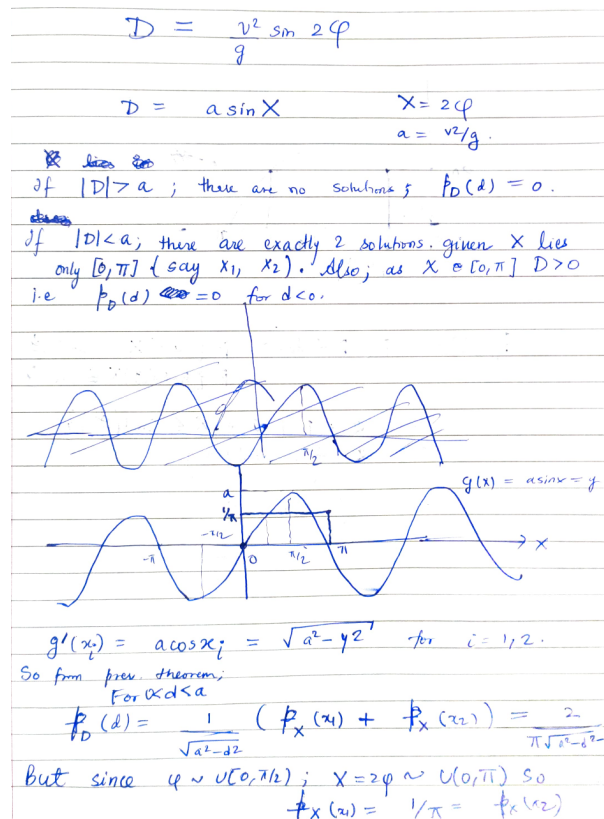 D = v²/g sin 2φ
D = a sin X X = 2φ
a = v²/g.
If |D| > a ; there are no solutions ; p_D(d) = 0.
If |D| < a ; there are exactly 2 solutions. given X lies
only [0, π] { say x₁, x₂). Also; as X ∈ [0, π] D>0
i.e p_D(d) = 0 for d<0.
π/2
g(x) = a sin x = y
a
1/π
-π/2
-π 0 π/2 π X
g'(xᵢ) = a cos xᵢ = √(a² - y²) for i = 1, 2.
So from prev. theorem;
For 0<d<a
p_D (d) = 1/√(a²-d²) ( p_X (x₁) + p_X (x₂) ) = 2/(π√(a²-d²))
But since φ ~ U[0, π/2) ; X = 2φ ~ U(0, π) So
p_X (x₁) = 1/π = p_X (x₂)